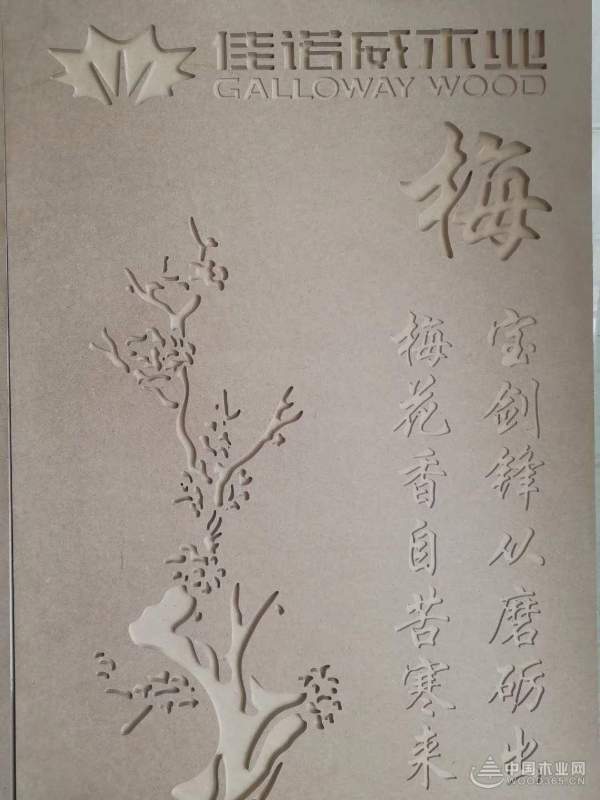 佳诺威木业
GALLOWAY WOOD
梅
宝剑锋从磨砺出
梅花香自苦寒来
中国木业网
WOOD365.CN